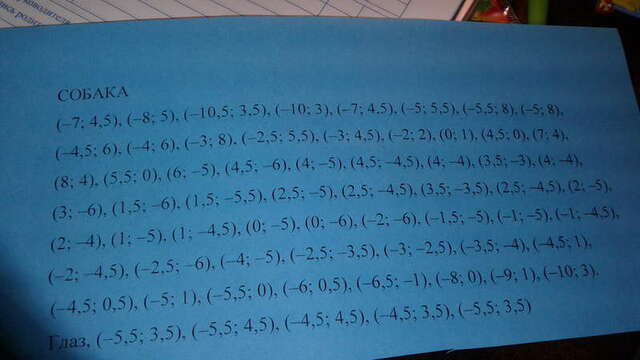 ководитель
ись родите
СОБАКА
(–7; 4,5), (–8; 5), (–10,5; 3,5), (–10; 3), (–7; 4,5), (–5; 5,5), (–5,5; 8), (–5; 8),
(–4,5; 6), (–4; 6), (–3; 8), (–2,5; 5,5), (–3; 4,5), (–2; 2), (0; 1), (4,5; 0), (7; 4),
(8; 4), (5,5; 0), (6; –5), (4,5; –6), (4; –5), (4,5; –4,5), (4; –4), (3,5; –3), (4; –4),
(3; –6), (1,5; –6), (1,5; –5,5), (2,5; –5), (2,5; –4,5), (3,5; –3,5), (2,5; –4,5), (2; –5),
(2; –4), (1; –5), (1; –4,5), (0; –5), (0; –6), (–2; –6), (–1,5; –5), (–1; –5), (–1; –4,5),
(–2; –4,5), (–2,5; –6), (–4; –5), (–2,5; –3,5), (–3; –2,5), (–3,5; –4), (–4,5; 1),
(–4,5; 0,5), (–5; 1), (–5,5; 0), (–6; 0,5), (–6,5; –1), (–8; 0), (–9; 1), (–10; 3).
Глаз, (–5,5; 3,5), (–5,5; 4,5), (–4,5; 4,5), (–4,5; 3,5), (–5,5; 3,5)